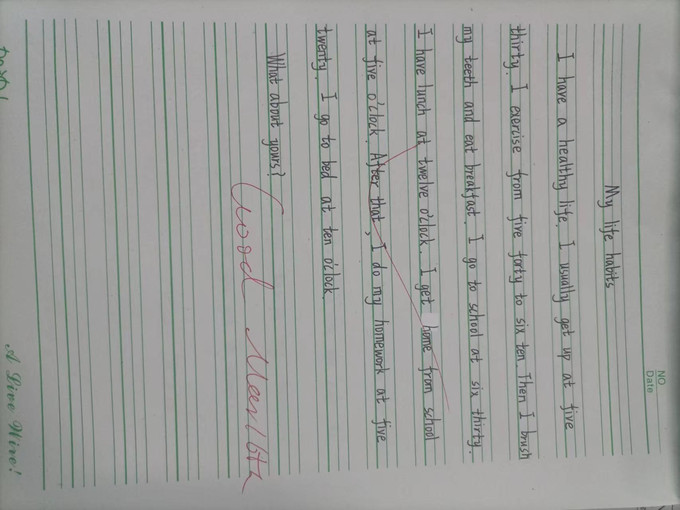 NO.
Date
My life habits
I have a healthy life. I usually get up at five
thirty. I exercise from five forty to six ten. Then I brush
my teeth and eat breakfast. I go to school at six thirty.
I have lunch at twelve o'clock. I get home from school
at five o'clock. After that, I do my homework at five
twenty. I go to bed at ten o'clock.
What about yours?
Good
A Live Wire!